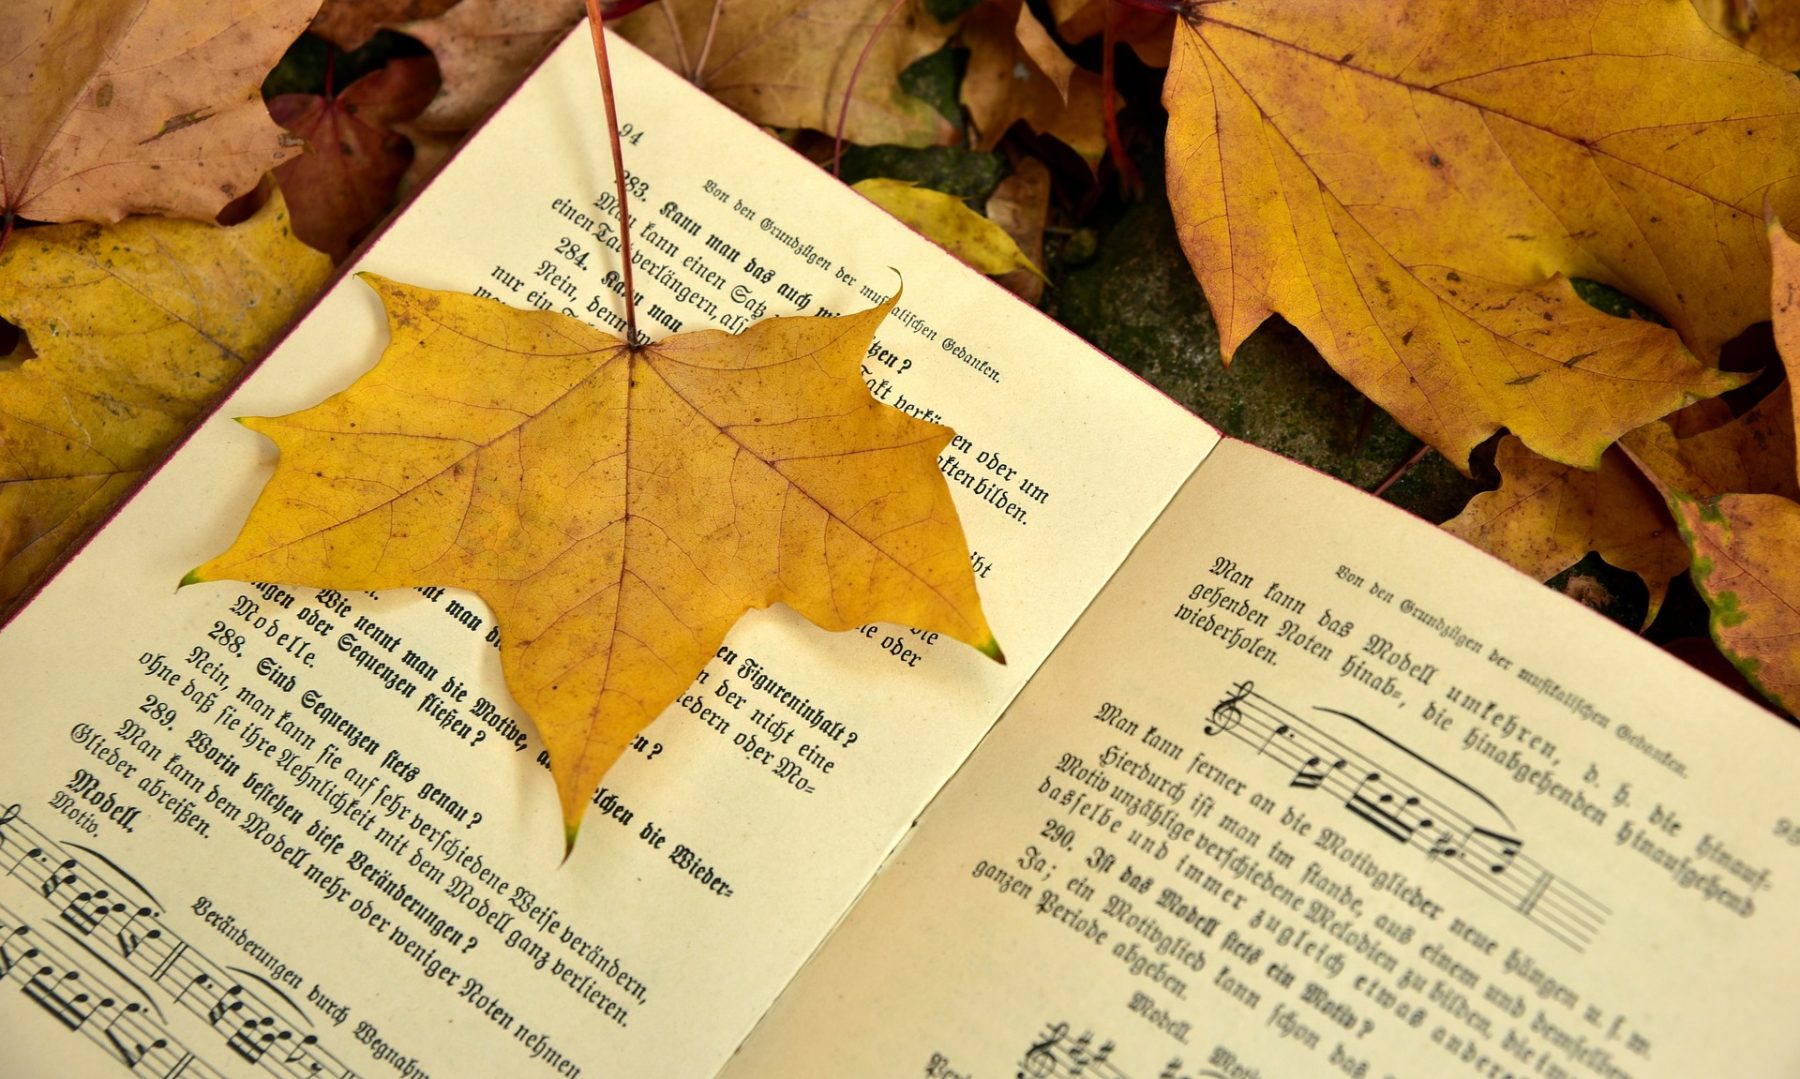 94
Von den Grundzügen der musikalischen Gedanken.
283. Kann man das auch mi tzen?
Man kann einen Satz Takt verkür en oder um
einen Takt verlängern, als akten bilden.
284. Kann man
Nein, denn
nur ein iht
die
ne oder
nt man di en Figureninhalt?
Wie nennt man die Motive, a n der nicht eine
ungen oder Sequenzen fließen? iedern oder Mo=
Modelle. en?
288. Sind Sequenzen stets genau? elchen die Wieder=
Nein, man kann sie auf sehr verschiedene Weise verändern,
ohne daß sie ihre Aehnlichkeit mit dem Modell ganz verlieren.
289. Worin bestehen diese Veränderungen?
Man kann dem Modell mehr oder weniger Noten nehmen
Glieder abreißen.
Modell. Veränderungen durch Wegnahm
Motiv.
95
Von den Grundzügen der musikalischen Gedanken.
Man kann das Modell umkehren, d. h. die hinauf=
gehenden Noten hinab=, die hinabgehenden hinaufgehend
wiederholen.
Man kann ferner an die Motivglieder neue hängen u. s. w.
Hierdurch ist man im stande, aus einem und demselben
Motiv unzählige verschiedene Melodien zu bilden, die im
dasselbe und immer zugleich etwas anderes
290. Ist das Modell stets ein Motiv?
Ja; ein Motivglied kann schon das
ganzen Periode abgeben.
Modell.